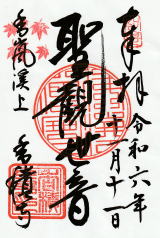 奉拝
令和六年
十一月十一日
聖観世音
香嵐渓上
香積寺